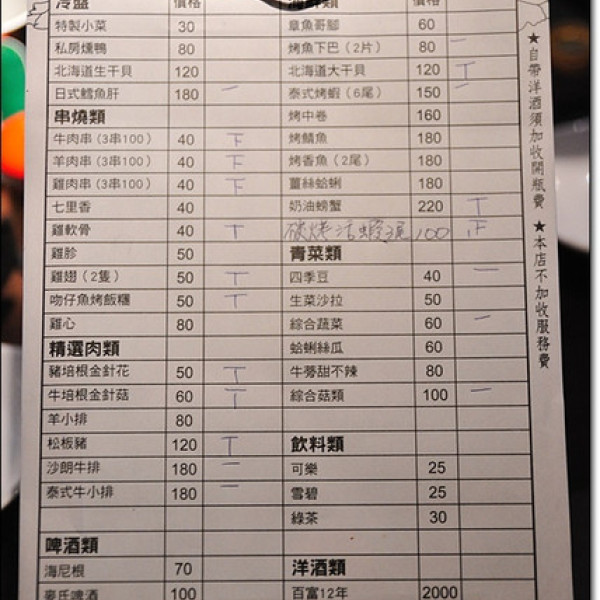 冷盤 價格
特製小菜 30
私房燻鴨 80
北海道生干貝 120
日式鱈魚肝 180 一
串燒類
牛肉串(3串100) 40 下
羊肉串(3串100) 40 下
雞肉串(3串100) 40 下
七里香 40
雞軟骨 40 丅
雞胗 50
雞翅(2隻) 50 丅
吻仔魚烤飯糰 50 丅
雞心 80
精選肉類
豬培根金針花 50 丅
牛培根金針菇 60 丅
羊小排 80
松板豬 120 丅
沙朗牛排 180 一
泰式牛小排 180 一
啤酒類
海尼根 70
麥氏啤酒 100
海鮮類 價格
章魚哥腳 60
烤魚下巴(2片) 80 一
北海道大干貝 120 丅
泰式烤蝦(6尾) 150 一
烤中卷 160
烤鯖魚 180
烤香魚(2尾) 180
薑絲蛤蜊 180
奶油螃蟹 220 丅
碳烤活蝦3尾 100 正
青菜類
四季豆 40 一
生菜沙拉 50
綜合蔬菜 60 一
蛤蜊絲瓜 60
牛蒡甜不辣 80
綜合菇類 100 一
飲料類
可樂 25
雪碧 25
綠茶 30
洋酒類
百富12年 2000
★自帶洋酒須加收開瓶費 ★本店不加收服務費